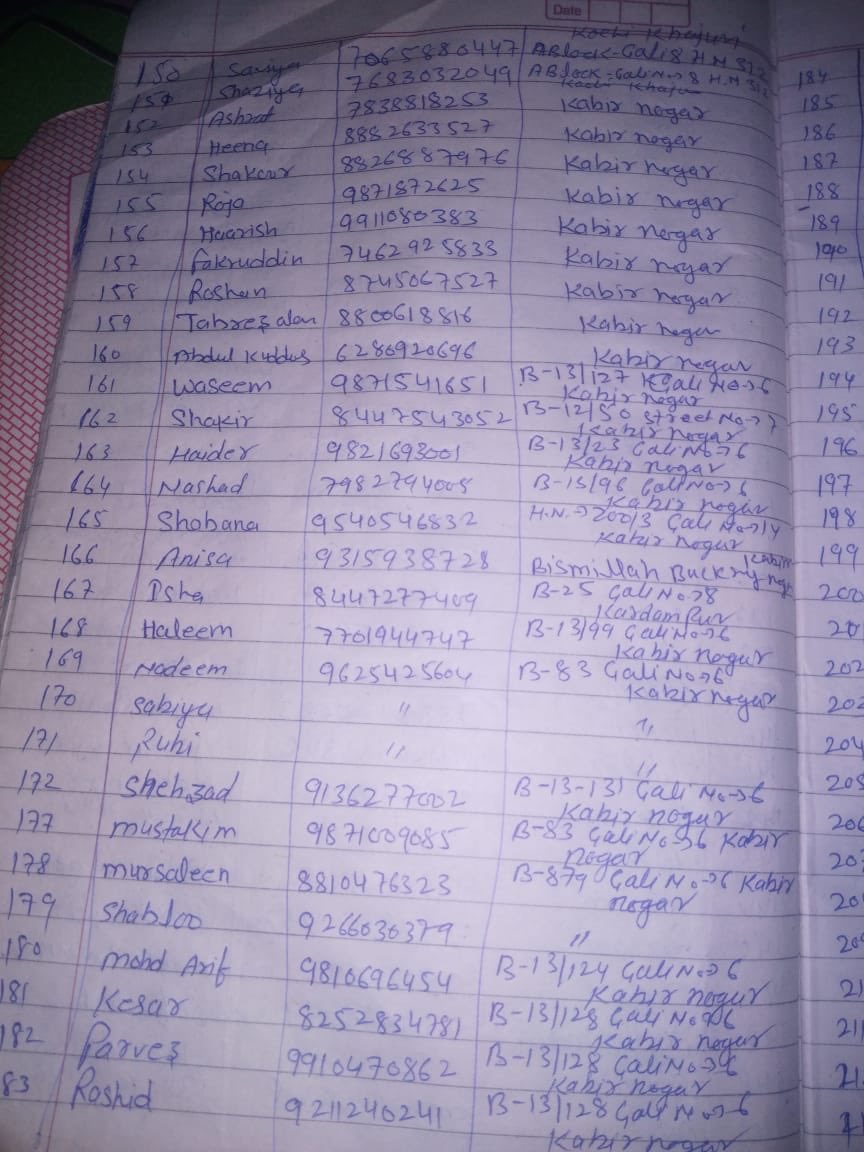 Date
Kachi Khajuri
150 Saniya 7065880447 A Block-Gali 8 H.N 312
151 Shaziya 7683032049 A Block-Gali No→8 H.N 312
Kachi Khajuri
152 Ashraf 7838818253 Kabir nagar
153 Heena 8882633527 Kabir nagar
154 Shakour 8826887976 Kabir nagar
155 Raja 9871872625 Kabir nagar
156 Haarish 9911080383 Kabir nagar
157 Fakruddin 7462925833 Kabir nagar
158 Roshan 8745067527 Kabir nagar
159 Tabrez alam 8800618816 Kabir nagar
160 Abdul Kuddus 6280920696 Kabir nagar
161 Waseem 9871541651 B-13/127 Gali No→6
Kabir nagar
162 Shakir 8447543052 B-12/50 Street No→7
Kabir nagar
163 Haider 9821693001 B-13/23 Gali No→6
Kabir nagar
164 Nashad 7982794005 B-13/96 Gali No→6
Kabir nagar
165 Shabana 9540546832 H.N.→200/3 Gali No→14
Kabir nagar
166 Anisa 9315938728 Bismillah Buckry Kabir nagar
167 Isha 8447277409 B-25 Gali No→8
Kardam Pur
168 Haleem 7701944747 B-13/99 Gali No→6
Kabir nagar
169 Nadeem 9625425604 B-83 Gali No→6
Kabir nagar
170 Sabiya " "
171 Ruhi " "
172 Shehzad 9136277002 B-13-131 Gali No→6
Kabir nagar
177 mustakim 9871009085 B-83 Gali No→6 Kabir
nagar
178 mursaleen 8810476323 B-879 Gali No→6 Kabir
nagar
179 Shabloo 9266030379 "
180 mohd Arif 9810696454 B-13/124 Gali No→6
Kabir nagar
181 Kesar 8252834781 B-13/128 Gali No→6
Kabir nagar
182 Parvez 9910470862 B-13/128 Gali No→6
Kabir nagar
83 Rashid 9211240241 B-13/128 Gali No→6
Kabir nagar
184
185
186
187
188
189
190
191
192
193
194
195
196
197
198
199
200
20
202
202
204
205
206
207
20
209
21
211
21